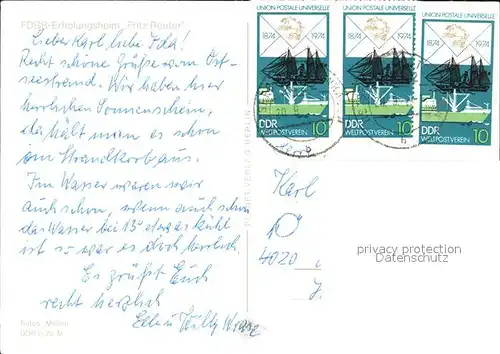 FDGB-Erholungsheim "Fritz Reuter"
Lieber Karl, liebe Ida!
Recht schöne Grüße vom Ost-
seestrand. Wir haben hier
herrlichen Sonnenschein,
da hält man es schon
im Strandkorb aus.
Im Wasser waren wir
auch schon, wenn auch schon
das Wasser bei 15° etwas kühl
ist so war es doch herrlich.
Es grüßt Euch
recht herzlich
u. Willy
UNION POSTALE UNIVERSELLE
1874 1974
DDR
WELTPOSTVEREIN 10
UNION POSTALE UNIVERSELLE
1874 1974
DDR
WELTPOSTVEREIN 10
UNION POSTALE UNIVERSELLE
1874 1974
DDR
WELTPOSTVEREIN 10
Karl
4020
privacy protection
Datenschutz